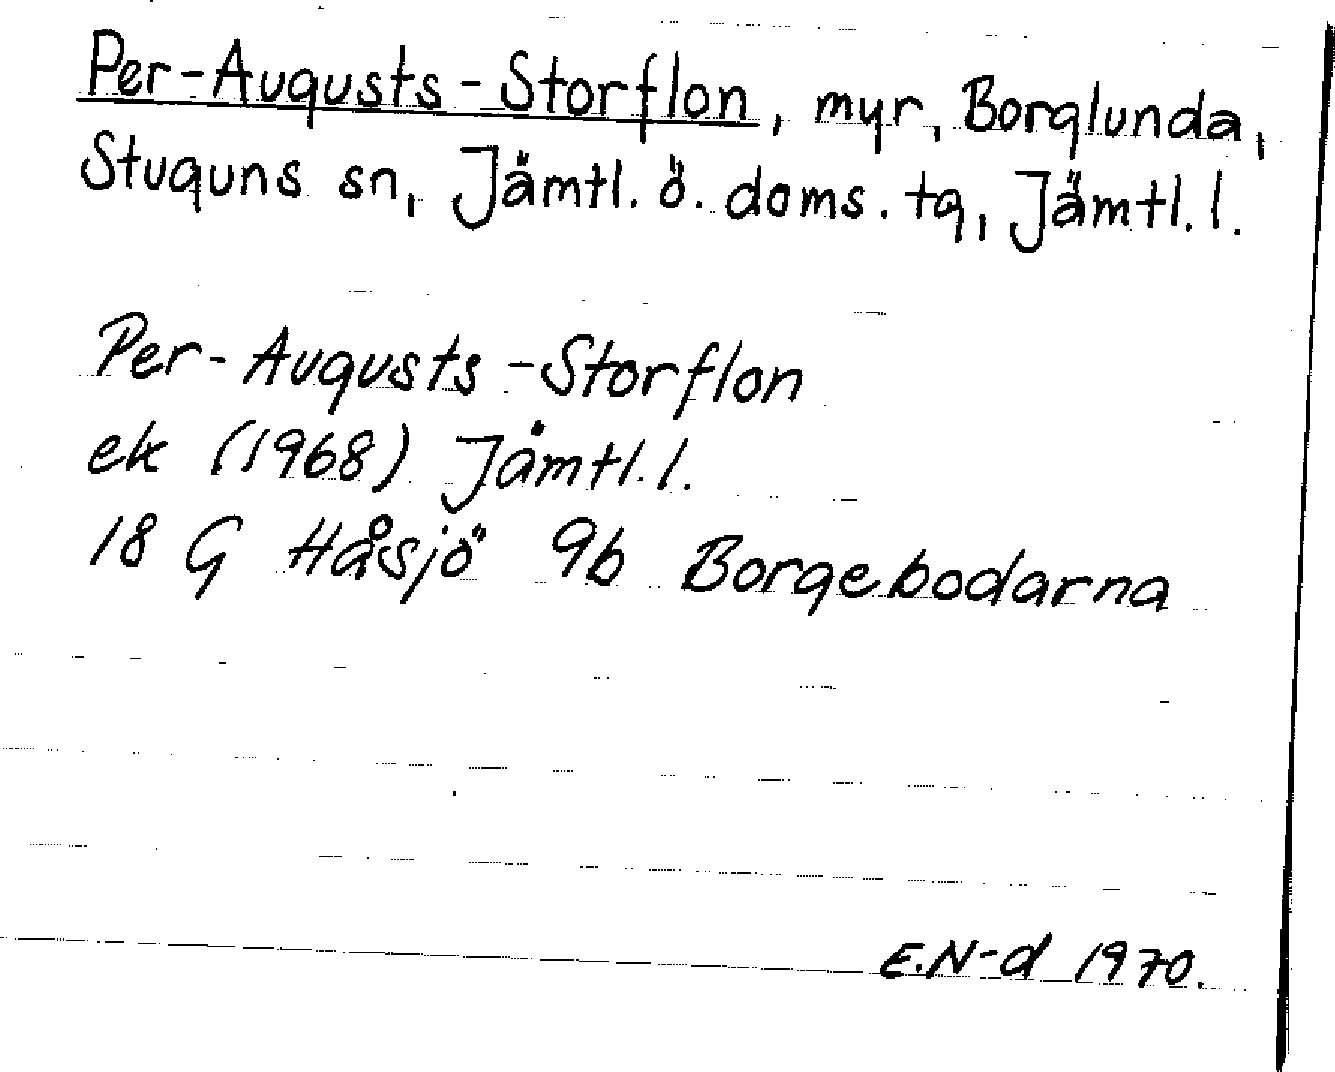 Per-Augusts-Storflon, myr, Borglunda,
Stuguns sn, Jämtl. ö. doms. tg, Jämtl. l.
Per-Augusts-Storflon
ek (1968) Jämtl. l.
18 G Håsjö 9b Borgebodarna
E.N-d 1970.